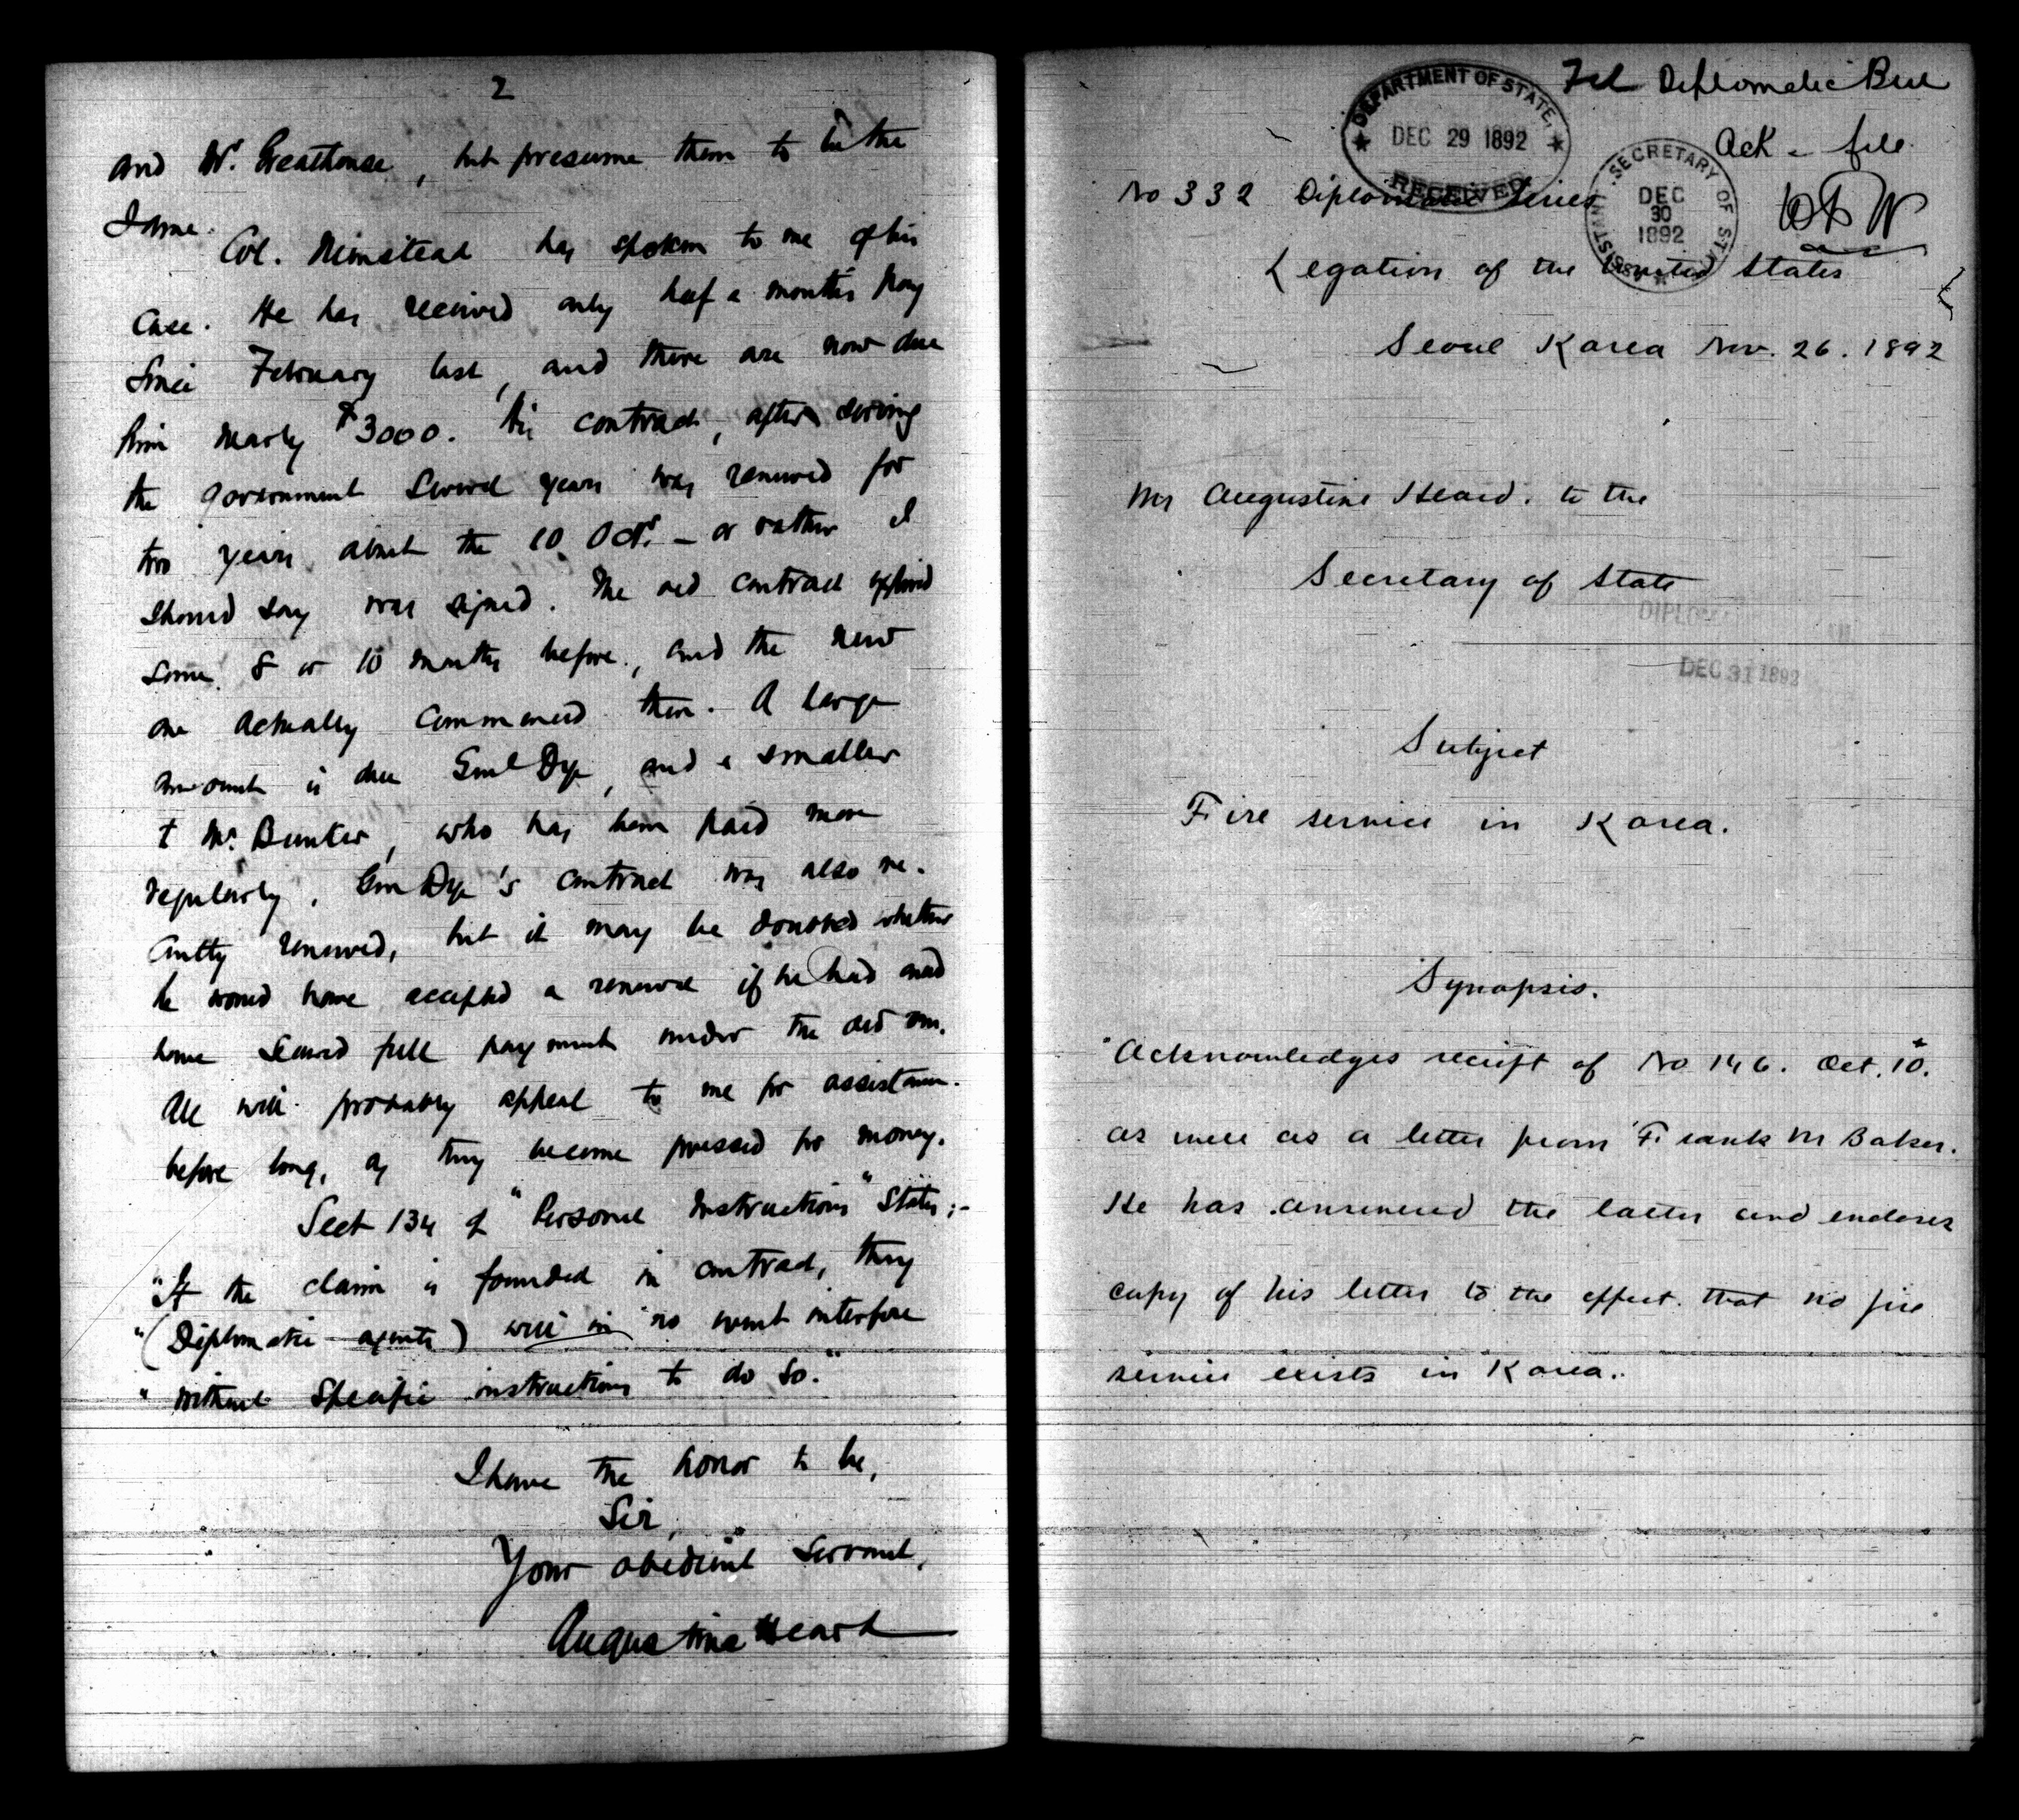 2
and Mr. Greathouse, but presume them to be the
same.
Col. Nienstead has spoken to me of his
case. He has received only half a months pay
since February last, and there are now due
him nearly $3000. His contract, after serving
the government several years was renewed for
two years about the 10 Octr. – or rather I
should say was signed. The old contract expired
some 8 or 10 months before, and the new
one actually commenced then. A large
amount is due Genl Dye, and a smaller
to Mr. Bunker, who has been paid more
regularly. Gen Dye's contract was also re-
cently renewed, but it may be doubted whether
he would have accepted a renewal if he had
have secured full payment under the old one.
All will probably appeal to me for assistance
before long, as they become pressed for money.
Sect 134 of "Personal Instructions" States:-
"If the claim is founded in contract, they
"(Diplomatic agents) will in no event interfere
"without specific instructions to do so."
I have the honor to be,
Sir,
Your obedient servant,
Augustine Heard
Diplomatic Bureau
DEPARTMENT OF STATE,
DEC 29 1892
RECEIVED
Ack - file
No 332 Diplomatic Series
SECRETARY OF STATE
DEC
30
1892
Legation of the United States
Seoul Korea Nov. 26. 1892
Mr Augustine Heard. to the
Secretary of State
DEC 31 1892
Subject
Fire service in Korea.
Synopsis.
Acknowledges receipt of No 146. Oct. 10.
as well as a letter from Frank M Baker.
He has answered the latter and encloses
copy of his letter to the effect that no fire
service exists in Korea.